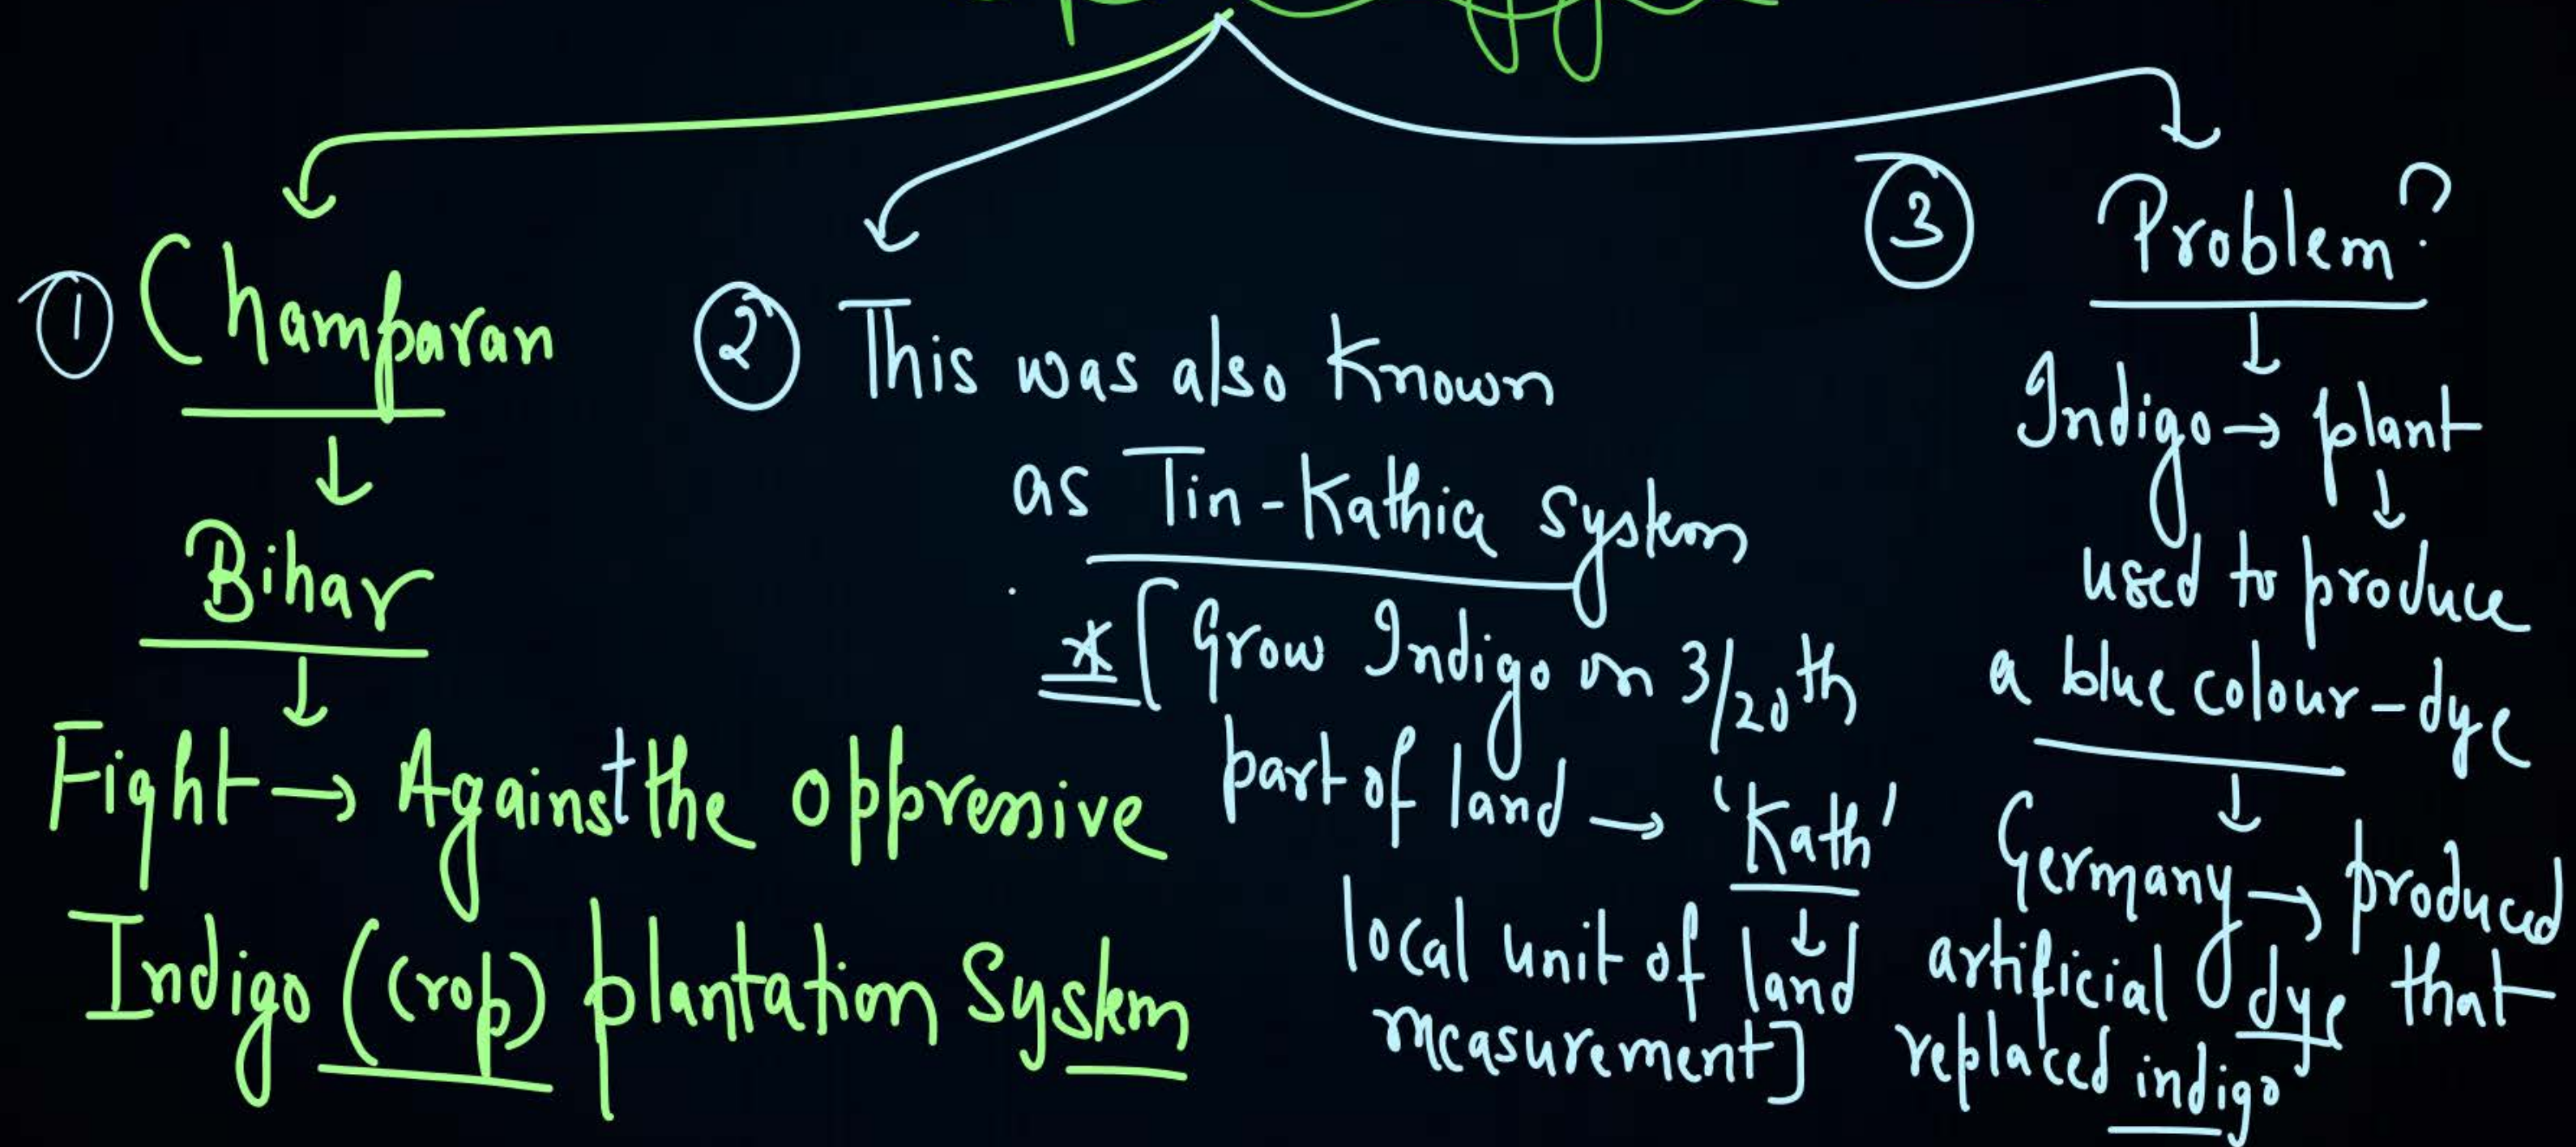 ① Champaran
↓
Bihar
↓
Fight → Against the oppressive
Indigo (crop) plantation System
② This was also known
as Tin-Kathia system
* [Grow Indigo on 3/20th
part of land → 'Kath'
↓
local unit of land
measurement]
③ Problem?
↓
Indigo → plant
↓
used to produce
a blue colour-dye
↓
Germany → produced
artificial dye that
replaced indigo